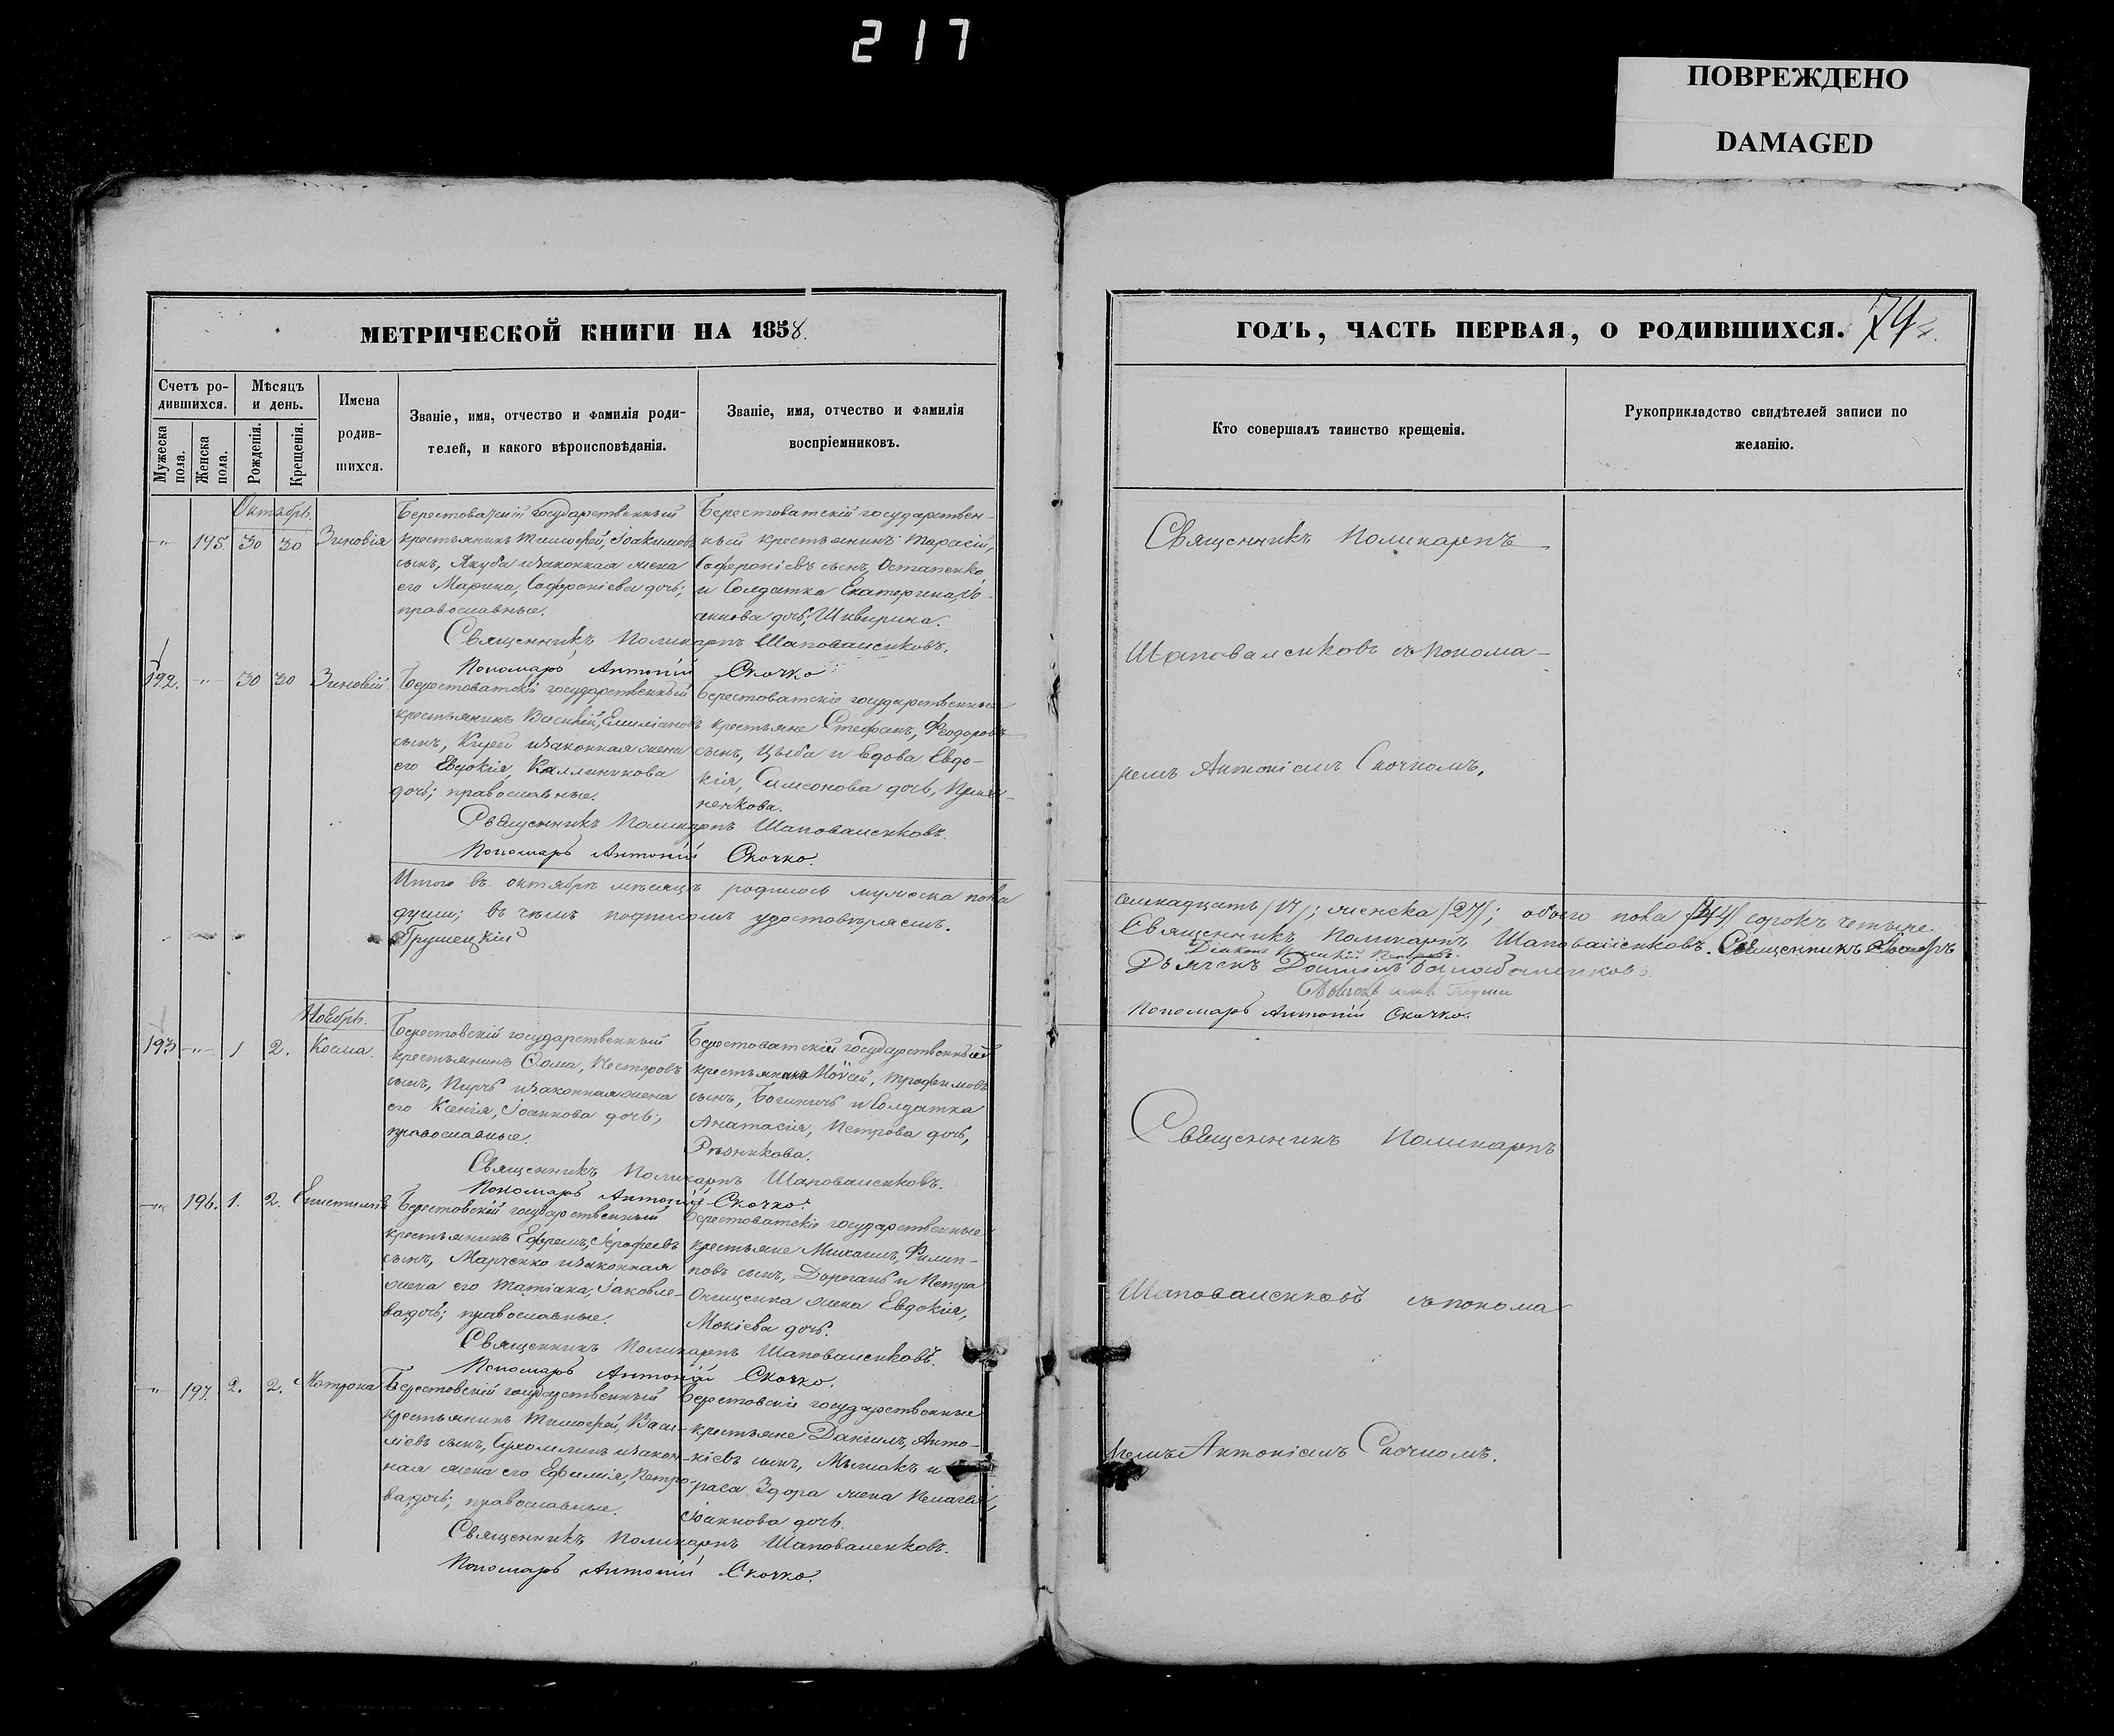 217
ПОВРЕЖДЕНО
DAMAGED
МЕТРИЧЕСКОЙ КНИГИ НА 1858.
Счетъ ро-
дившихся.
Мѣсяцъ
и день.
Имена
родив-
шихся.
Званіе, имя, отчество и фамилія роди-
телей, и какого вѣроисповѣданія.
Званіе, имя, отчество и фамилія
воспріемниковъ.
Мужеска
пола.
Женска
пола.
Рожденія.
Крещенія.
Октябрь.
195. 30 30 Зиновія
Берестоватскій государственный
крестьянинъ Тимофей, Іоакимовъ
сынъ, Якуба и законная жена
его Марина, Софроніева дочь;
православные.
Берестоватскій государствен-
ный крестьянинъ Тарасій,
Софероніевъ сынъ, Остапенко
и Солдатка Екатерина, Іо-
аннова дочь, Шквирина.
Священникъ Поликарпъ Шаповаленковъ.
Пономарь Антоній Скочко.
192. -"- 30 30 Зиновій
Берестоватскій государственный
крестьянинъ Василій, Емиліановъ
сынъ, Кирей и законная жена
его Евдокія, Каллиникова
дочь; православные.
Берестоватскіе государственные
крестьяне Стефанъ, Феодоровъ
сынъ, Цыба и вдова Евдо-
кія, Симеонова дочь,
Священникъ Поликарпъ Шаповаленковъ.
Пономарь Антоній Скочко.
Итого въ октябрѣ мѣсяцѣ родилось мужеска пола
души; въ чемъ подписомъ удостовѣряемъ.
Грушецкій
Ноябрь.
193 -"- 1 2. Косма.
Берестовскій государственный
крестьянинъ Ѳома, Несторовъ
сынъ, и законная жена
его Ксенія, Іоаннова дочь;
православные.
Берестоватскій государственный
крестьянинъ Моѵсей, Трофимовъ
сынъ, и Солдатка
Анатасія, Петрова дочь,
Рѣзникова.
Священникъ Поликарпъ Шаповаленковъ.
Пономарь Антоній Скочко.
-"- 196. 1. 2. Епистимія
Берестовскій государственный
крестьянинъ Ефремъ, Іерофеевъ
сынъ, Марченко и законная
жена его Татіана, Іаковле-
ва дочь; православные.
Берестоватскіе государственные
крестьяне Михаилъ, Филип-
повъ сынъ, Дорогань и Петра
Онищенка жена Евдокія,
Мокіева дочь.
Священникъ Поликарпъ Шаповаленковъ.
Пономарь Антоній Скочко.
-"- 197. 2. 2. Матрона
Берестовскій государственный
крестьянинъ Тимофей, Васи-
ліевъ сынъ, Сухомлинъ и закон-
ная жена его Ефимія, Петро-
ва дочь; православные.
Берестовскіе государственные
крестьяне Даніилъ, Анто-
ніевъ сынъ, и
Здора жена Пелагея,
Іоаннова дочь.
Священникъ Поликарпъ Шаповаленковъ.
Пономарь Антоній Скочко.
ГОДЪ, ЧАСТЬ ПЕРВАЯ, О РОДИВШИХСЯ.
Кто совершалъ таинство крещенія.
Рукоприкладство свидѣтелей записи по
желанію.
Священникъ Поликарпъ
Шаповаленковъ съ понома-
ремъ Антоніемъ Скочкомъ.
семнадцать /17/; женска /27/; обоего пола /44/ сорокъ четыре
Священникъ Поликарпъ Шаповаленковъ. Священникъ
Дьячекъ
Пономарь Антоній Скочко.
Священникъ Поликарпъ
Шаповаленковъ съ понома
ремъ Антоніемъ Скочкомъ.